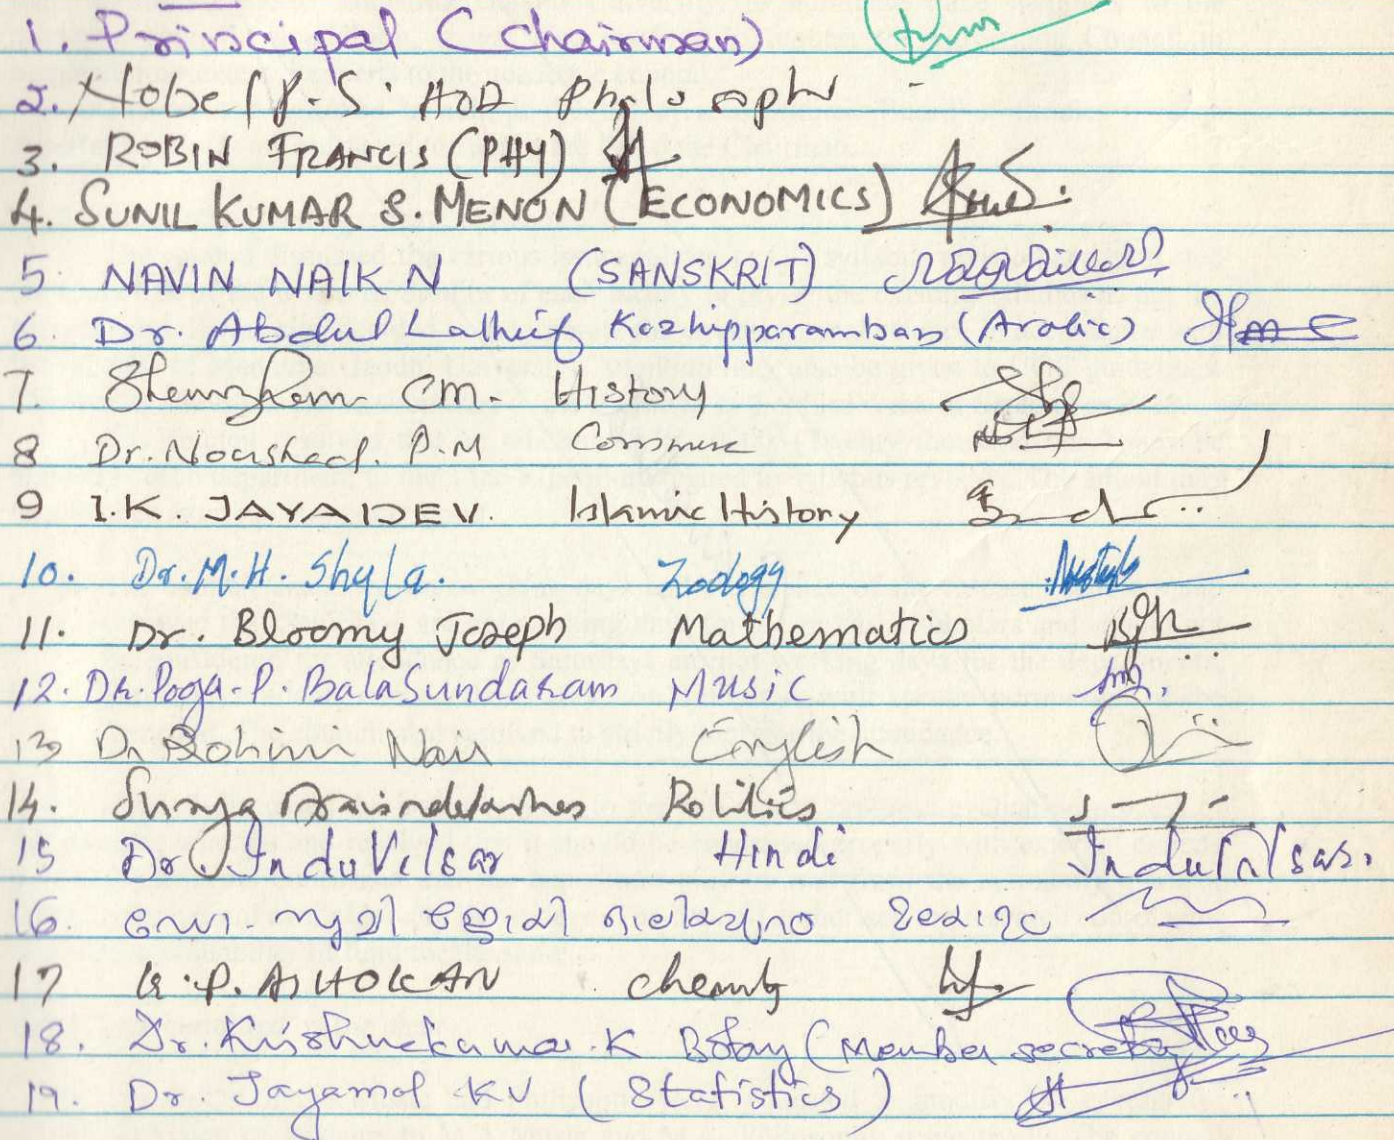 1. Principal (Chairman)
2. Nobel P. S. HOD Philosophy
3. ROBIN FRANCIS (PHY)
4. SUNIL KUMAR S. MENON (ECONOMICS)
5 NAVIN NAIK N (SANSKRIT)
6. Dr. Abdul Latheif Kozhipparamban (Arabic)
7. CM. History
8 Dr. Noushad. P.M Commerce
9 I.K. JAYADEV. Islamic History
10. Dr. M.H. Shyla. Zoology
11. Dr. Bloomy Joseph Mathematics
12. Dr. Pooja. P. Balasundaram Music
13 Dr Nair English
14. Surya Politics
15 Dr. Indu Vilsar Hindi
16. ഡോ. സുമി ജോയി മലയാളം
17 K.P. ASHOKAN
18. Dr. Krishnakumar. K Botany (Member secretary)
19. Dr. Jayamol K.V (Statistics)